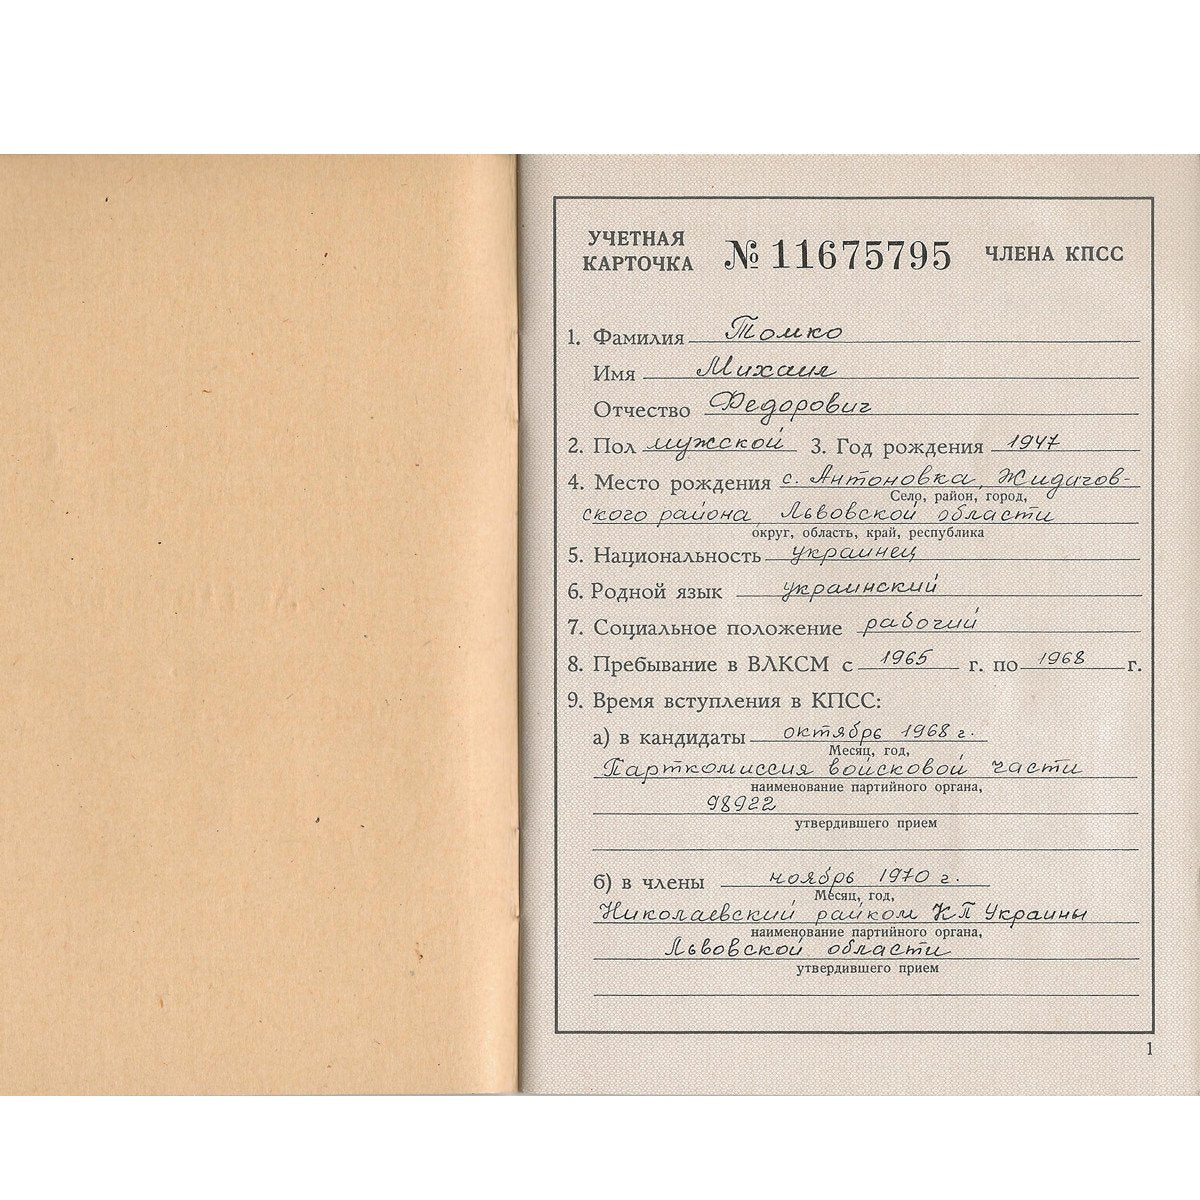 УЧЕТНАЯ КАРТОЧКА № 11675795 ЧЛЕНА КПСС
1. Фамилия Томко
Имя Михаил
Отчество Федорович
2. Пол мужской 3. Год рождения 1947
4. Место рождения с. Антоновка, Жидачов-
Село, район, город,
ского района, Львовской области
округ, область, край, республика
5. Национальность украинец
6. Родной язык украинский
7. Социальное положение рабочий
8. Пребывание в ВЛКСМ с 1965 г. по 1968 г.
9. Время вступления в КПСС:
а) в кандидаты октябрь 1968 г.
Месяц, год,
Парткомиссия войсковой части
наименование партийного органа,
98922
утвердившего прием
б) в члены ноябрь 1970 г.
Месяц, год,
Николаевский райком КП Украины
наименование партийного органа,
Львовской области
утвердившего прием
1